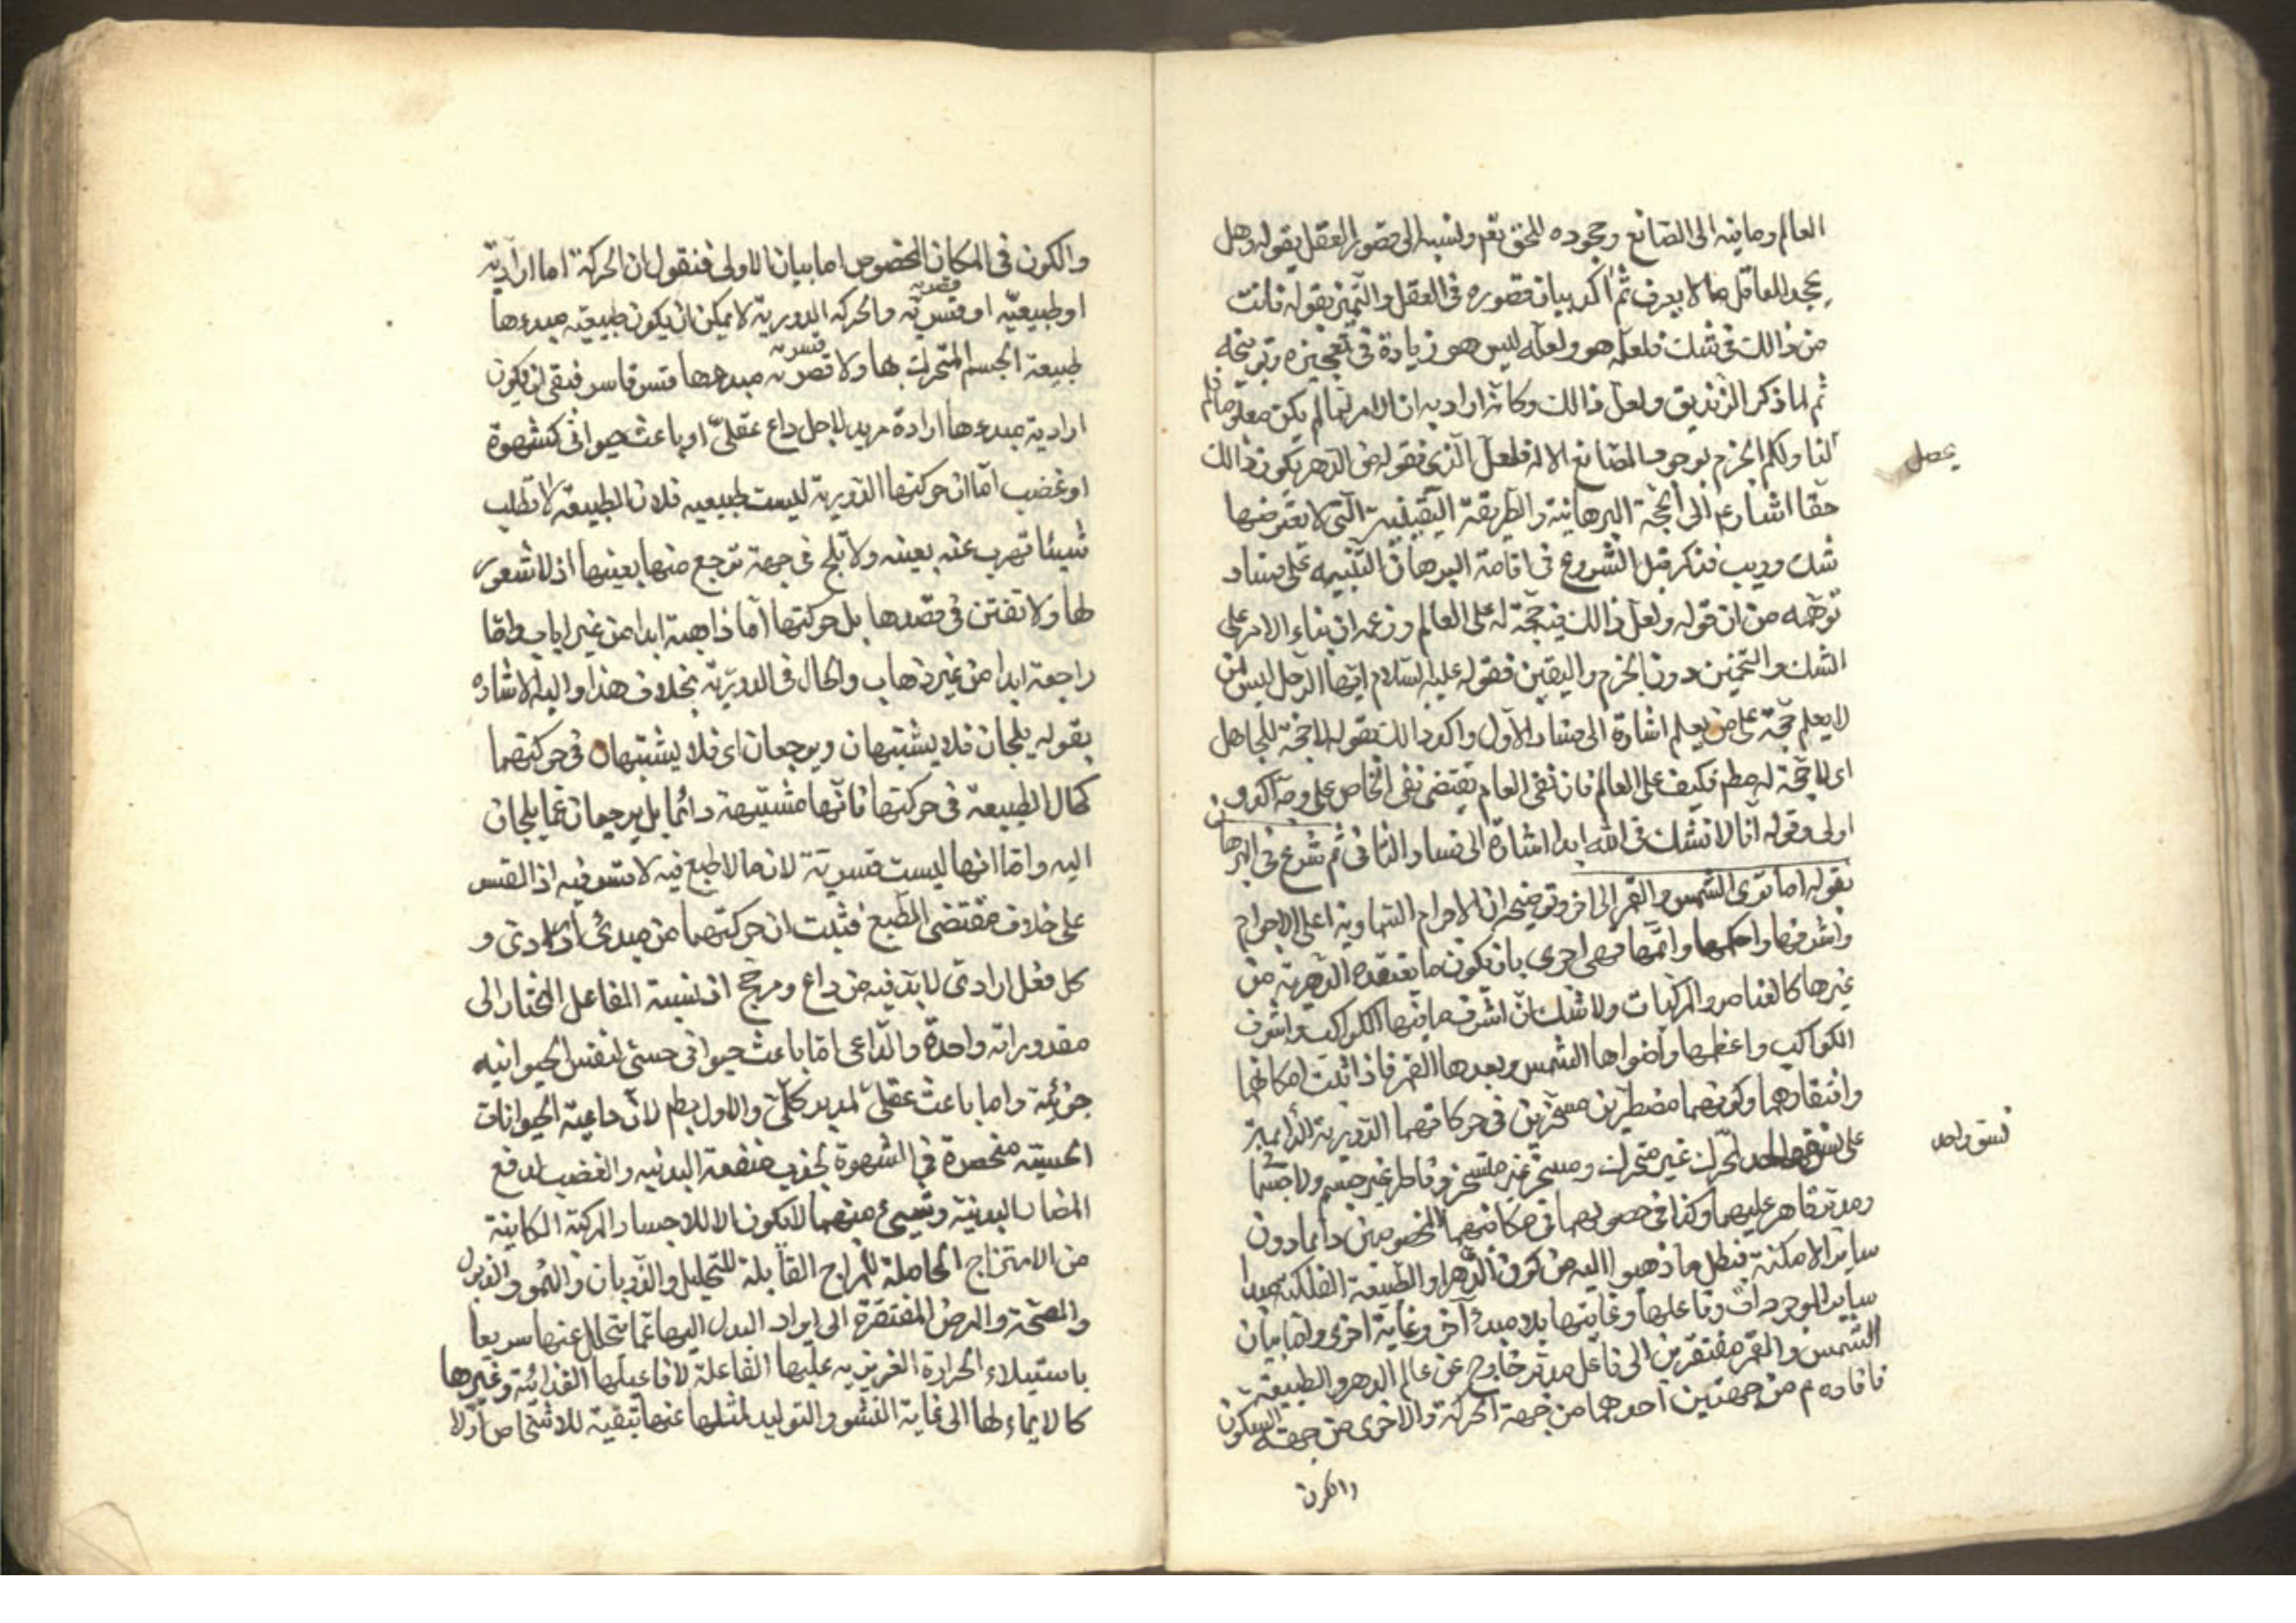 العالم وما فيه الى الصانع وجحوده للحق نعم ولنسبه الى قصور العقل بقوله وهل
يجحد العاقل ما لا يعرف ثم اكد بيان قصوره فى العقل والتميز بقوله فانت
من ذالك فى شك فلعله هو ولعله ليس هو زيادة فى تعجيزه وتوبيخه
ثم لما ذكر الزنديق ولعل ذالك وكانه اراد به ان الامر لما لم يكن معلوما لم
لنا ولكم الجزم بوجود الصانع الاله فلعل الذى نقوله من الدهر يكون ذالك
يحصل
حقا اشار ع الى الحجة البرهانية والطريقة اليقينية التى لا يعترضها
شك وريب فذكر قبل الشروع فى اقامة البرهان التنبيه على فساد
توهمه من ان قوله ولعل ذالك فيه حجة له على العالم وزعمه ان بناء الامر على
الشك والتخمين دون الجزم واليقين فقوله عليه السلام ايها الرجل ليس لمن
لا يعلم حجة على من يعلم اشارة الى فساد الاول واكد ذالك بقوله لا حجة للجاهل
اى لا حجة له مطم فكيف على العالم فان نفى العام يقتضى نفى الخاص على وجه آكد و
اولى وقوله انا لا نشك فى الله ابدا اشارة الى فساد الثانى ثم شرع فى البرهان
بقوله اما ترى الشمس والقمر الى آخر وتوضيحه ان الاجرام السماوية اعلى الاجرام
واشرفها واحكمها واتمها فهى احرى بان يكون ما يعتقده الدهرية من
غيرها كالعناصر والمركبات ولا شك ان اشرف ما فيها الكواكب واشرف
الكواكب واعظمها واضواها الشمس وبعدها القمر فاذا ثبت امكانها
وافتقارهما وكونهما مضطرين مسخرين فى حركاتهما الدورية الدائمية
على نسق واحد لمحرك غير متحرك ومسخر غير متسخر وفاطر غير جسم ولا جسمانى
نسق واحد
ومدبر قاهر عليهما وكذا فى حصولهما فى مكانيهما المخصوصين دايما دون
ساير الامكنة فبطل ما ذهبوا اليه من كون الدهر او الطبيعة الفلكية مبدا
ساير الموجودات وفاعلها وغايتها بلا مبدء آخر وغاية اخرى واما بيان
الشمس والقمر مفتقرين الى فاعل مدبر خارج عن عالم الدهر والطبيعة
فافاده م من جهتين احدهما من جهة الحركة والاخرى من جهة السكون
والكون
والكون فى المكان المخصوص اما بيان الاولى فنقول ان الحركة اما ارادية
او طبيعية او قسرية والحركة الدورية لا يمكن ان يكون طبيعية مبدءها
طبيعة الجسم المتحرك بها ولا قصرية مبدءها قسر قاسر فبقى ان يكون
قسرية
ارادية مبدءها ارادة مريد لاجل داع عقلى او باعث حيوانى كشهوة
او غضب اما ان حركتهما الدورية ليست طبيعيه فلان الطبيعة لا تطلب
شيئا تهرب عنه بعينه ولا يلج فى جهة ترجع منها بعينها اذ لا شعور
لها ولا تفتن فى قصدها بل حركتها اما ذاهبة ابدا من غير اياب واما
راجعة ابدا من غير ذهاب والحال فى الدورية بخلاف هذا واليه الاشارة
بقوله يلجان فلا يشتبهان ويرجعان اى فلا يشتبهان فى حركتهما
كحال الطبيعة فى حركتها فانها مشتبهة دائما بل يرجعان عما يلجان
اليه واما انها ليست قسرية لان ما لا طبع فيه لا قسر فيه اذ القسر
على خلاف مقتضى الطبع فثبت ان حركتهما من مبدئ ارادى و
كل فعل ارادى لا بد فيه من داع ومرجح اذ نسبة الفاعل المختار الى
مقدوراته واحدة والداعى اما باعث حيوانى حسى لنفس الحيوانيه
جزئية واما باعث عقلى لمدبر كلى والاول بطم لان داعية الحيوانات
الحسية منحصرة فى الشهوة لجذب منفعة البدنيه والغضب لدفع
المضار البدنية وشيئ منهما لا يكون الا للاجساد المركبة الكاينة
من الامتزاج الحاملة للمزاج القابلة للتحليل والذوبان والنمو والذبول
والصحة والمرض المفتقرة الى ايراد البدل اليها عما يتحلل عنها سريعا
باستيلاء الحرارة الغريزيه عليها الفاعلة لافاعيلها الغذائية وغيرها
كالايماء لها الى غاية النشو والتوليد لمثلها عنها تبقية للاشخاص اولا